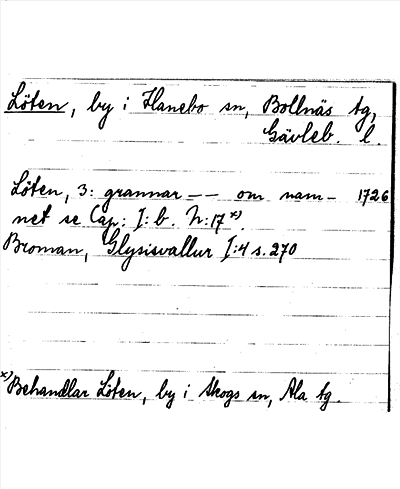 Löten, by i Hanebo sn, Bollnäs tg,
Gävleb. l.
Löten, 3: grannar – – om nam- 1726
net se Cap: I: b. N: 17 x).
Broman, Glysisvallur I:4 s. 270
x) Behandlar Löten, by i Skogs sn, Ala tg.